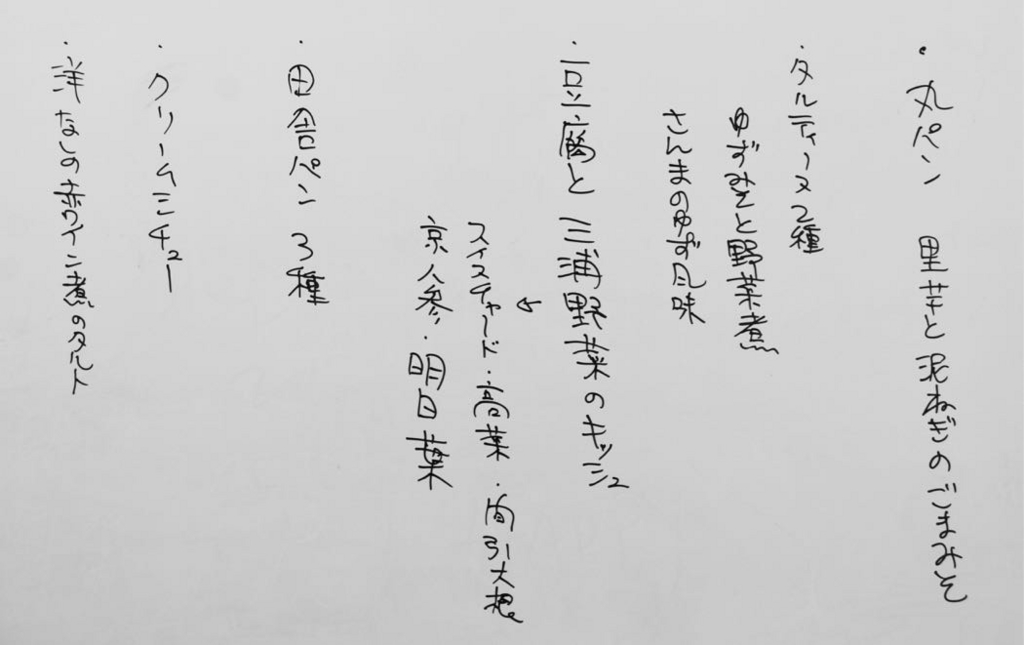 ・丸パン 里芋と泥ねぎのごまみそ
・タルティーヌ2種
ゆずみそと野菜煮
さんまのゆず風味
・豆腐と三浦野菜のキッシュ
スイスチャード・高菜・間引大根
京人参・明日葉
・田舎パン 3種
・クリームシチュー
・洋なしの赤ワイン煮のタルト